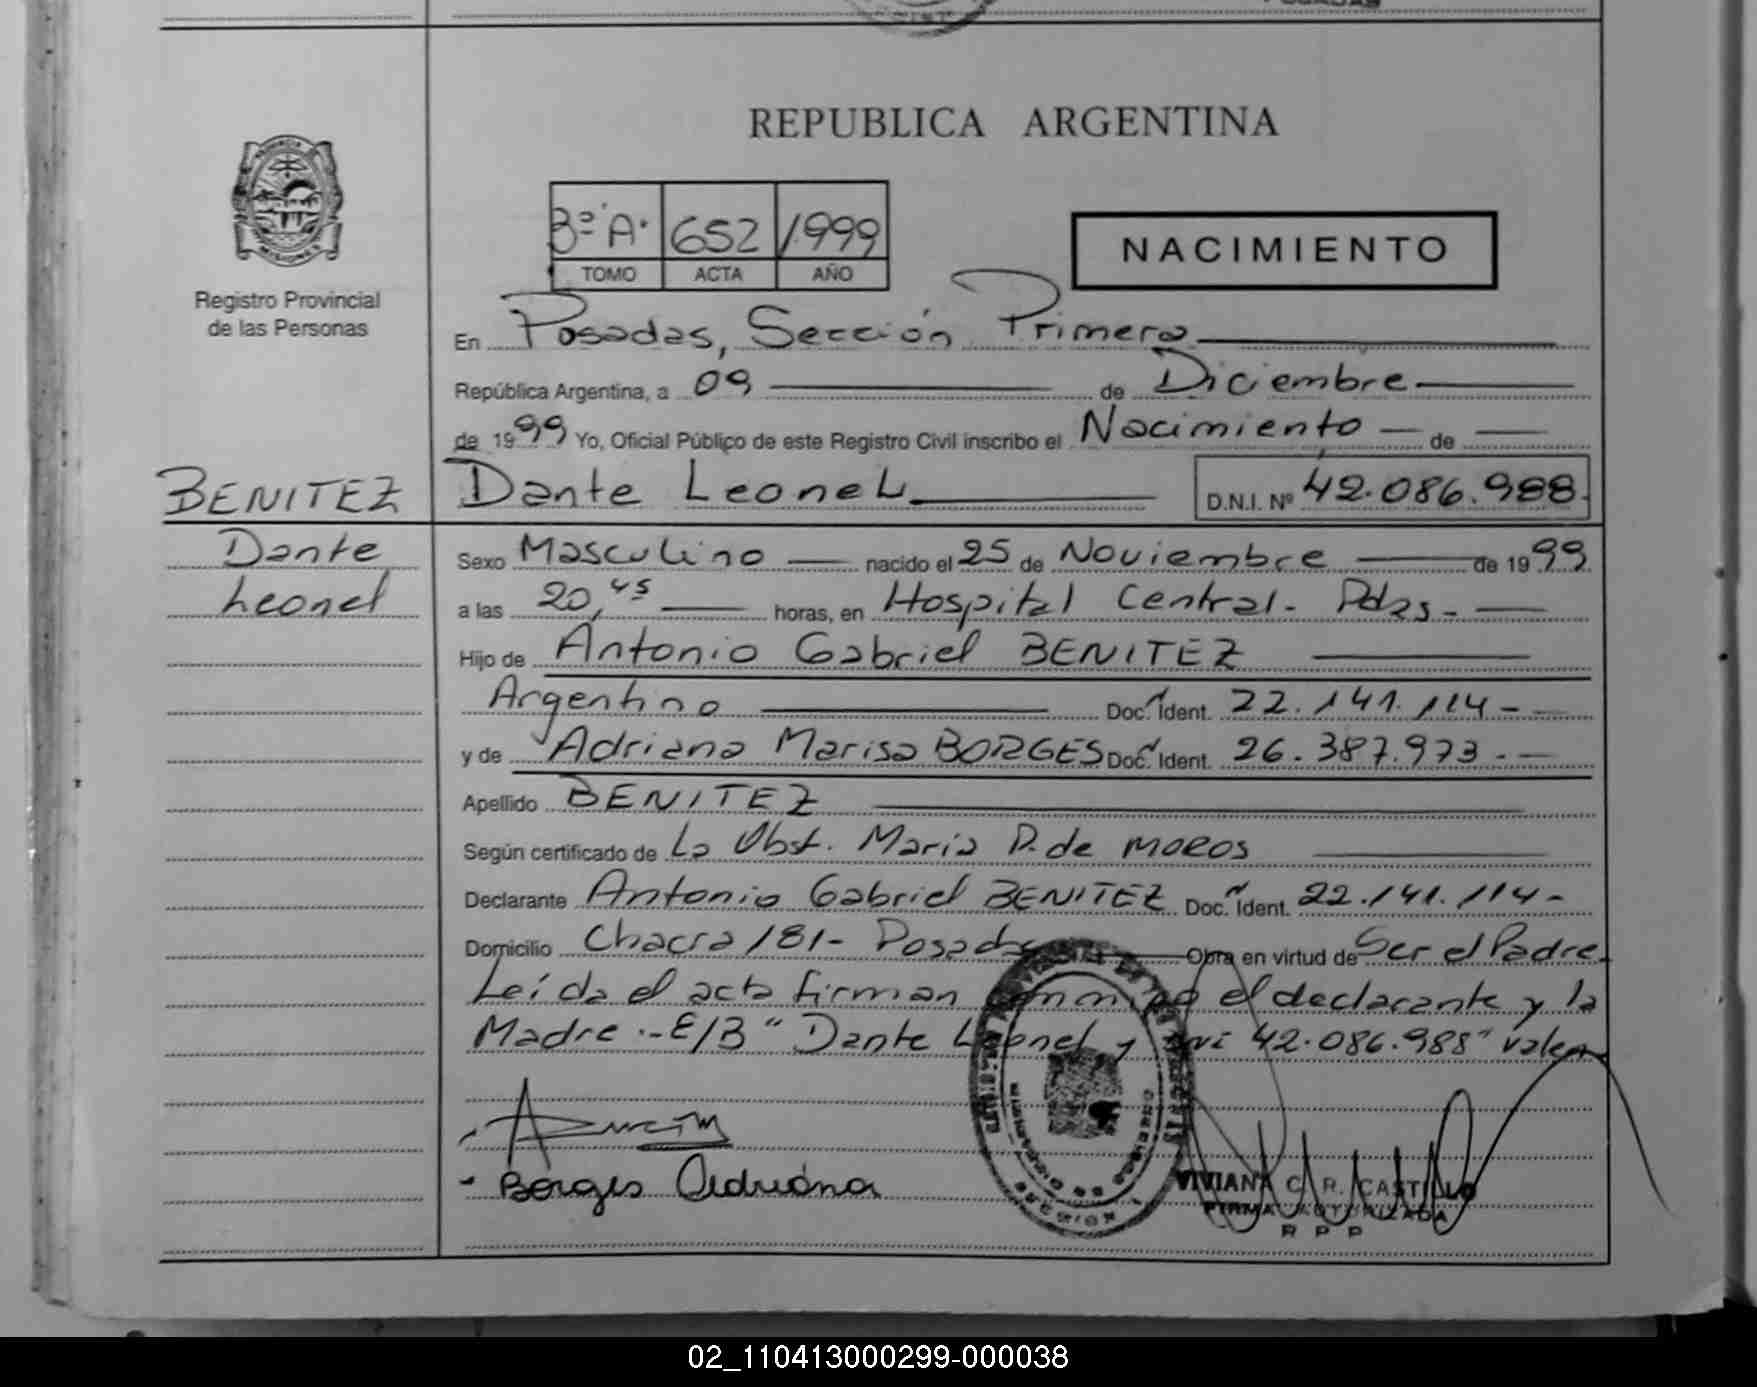 REPUBLICA ARGENTINA
PROVINCIA
MISIONES
Registro Provincial
de las Personas
3º "A"
652
1999
TOMO
ACTA
AÑO
NACIMIENTO
En Posadas, Sección Primera
República Argentina, a 09 de Diciembre
de 1999 Yo, Oficial Público de este Registro Civil inscribo el Nacimiento de
BENITEZ
Dante Leonel D.N.I. Nº 42.086.988.
Dante
Leonel
Sexo Masculino nacido el 25 de Noviembre de 1999
a las 20,45 horas, en Hospital Central - Pdas -
Hijo de Antonio Gabriel BENITEZ
Argentino Doc. Ident. 22.141.114 -
y de Adriana Marisa BORGES Doc. Ident. 26.387.973 -
Apellido BENITEZ
Según certificado de La Obst. Maria P. de MOROS
Declarante Antonio Gabriel BENITEZ Doc. Ident. 22.141.114 -
Domicilio Chacra 181 - Posadas Obra en virtud de Ser el Padre.
Leída el acta firman conmigo el declarante y la
Madre .- E/B "Dante Leonel y 42.086.988" valen
Borges Adriana
VIVIANA C. R. CASTILLO
FIRMA AUTORIZADA
R P P
02_110413000299-000038